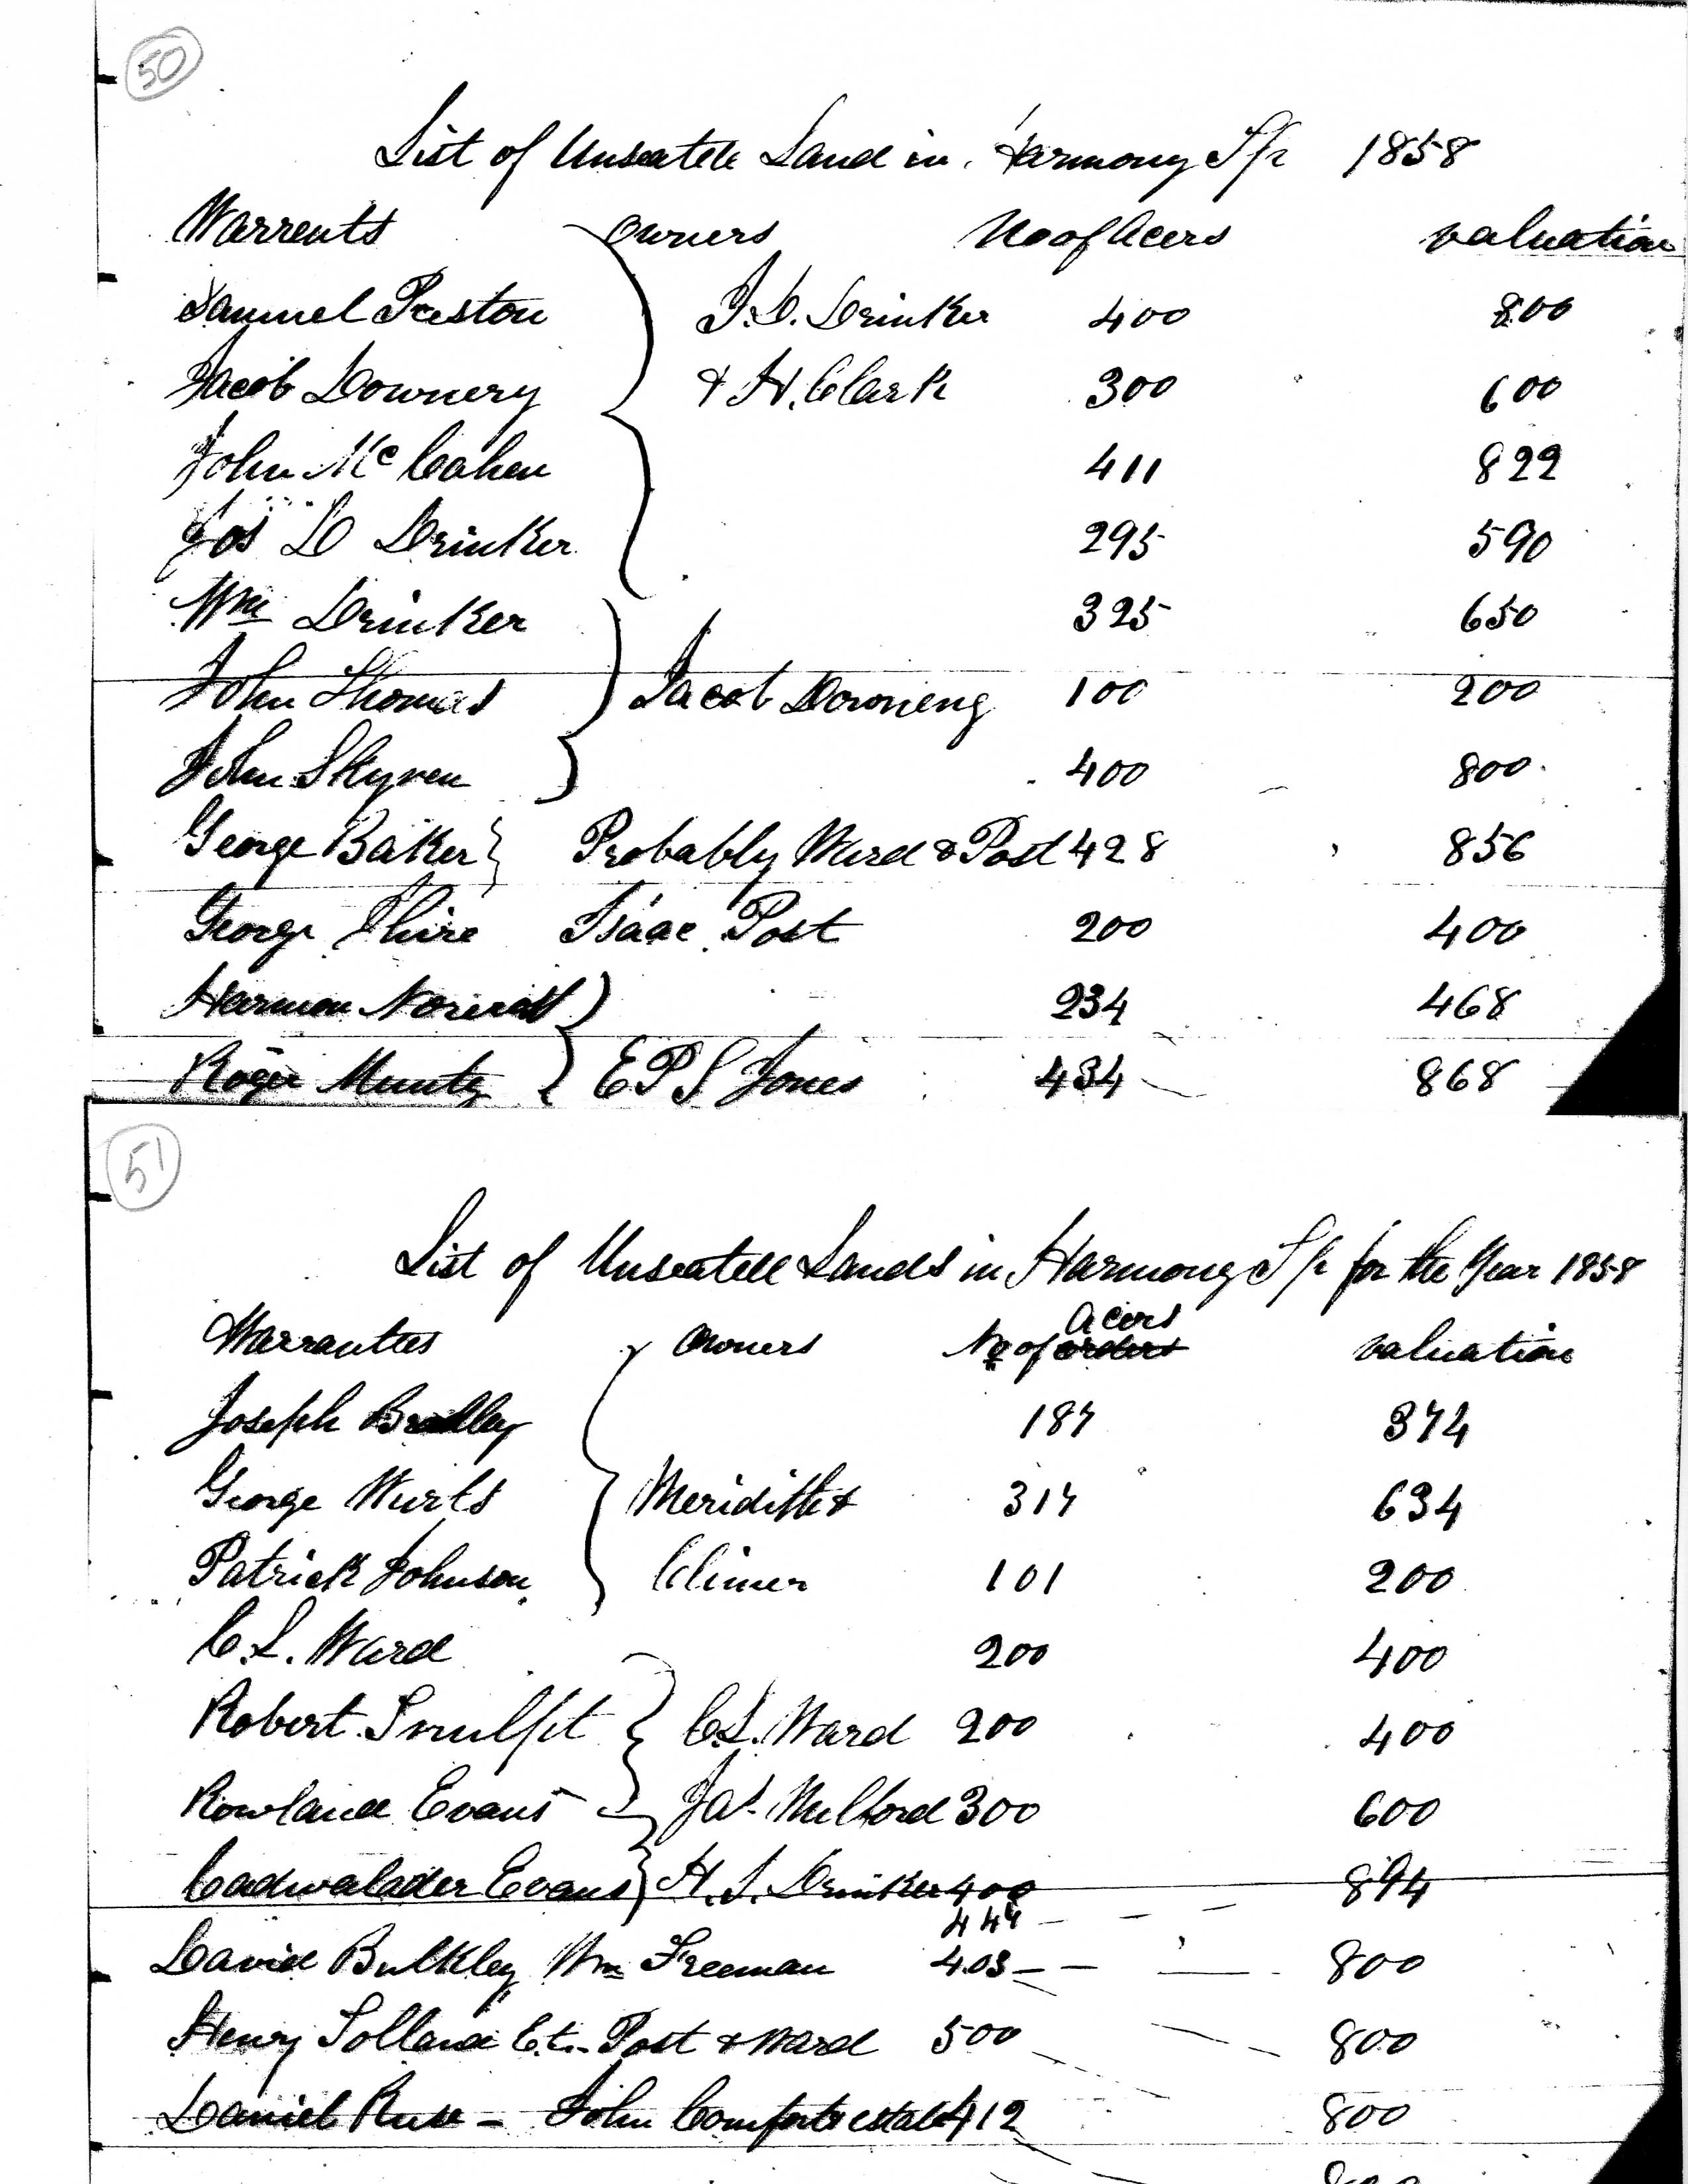 50
List of Unseated Land in Harmony Tp 1858
Warrents owners No of Acers valuation
Samuel Preston J.D. Drinker 400 800
Jacob Downery & H. Clark 300 600
John McCahen 411 822
Jos D Drinker 295 590
Wm Drinker 325 650
John Thomas Jacob Downeng 100 200
John Skyren 400 800
George Baker Probably Ward & Post 428 856
George Shire Isaac Post 200 400
Harmon 234 468
Roger Muntz E P S Jones 434 868
51
List of Unseated Lands in Harmony Tp for the Year 1858
Acers
Warrantees owners No of orders valuation
Joseph Bradley 187 374
George Wurts Meridith & 317 634
Patrick Johnson Climer 101 200
C.L. Ward 200 400
Robert C.L. Ward 200 400
Rowland Evans Jas. Melhord 300 600
Cadwalader Evans H.S. Drinker 400 894
447
David Bulkley Wm Freeman 403 800
Henry Post & Ward 500 800
Daniel Ruse - John Comforts estate 412 800